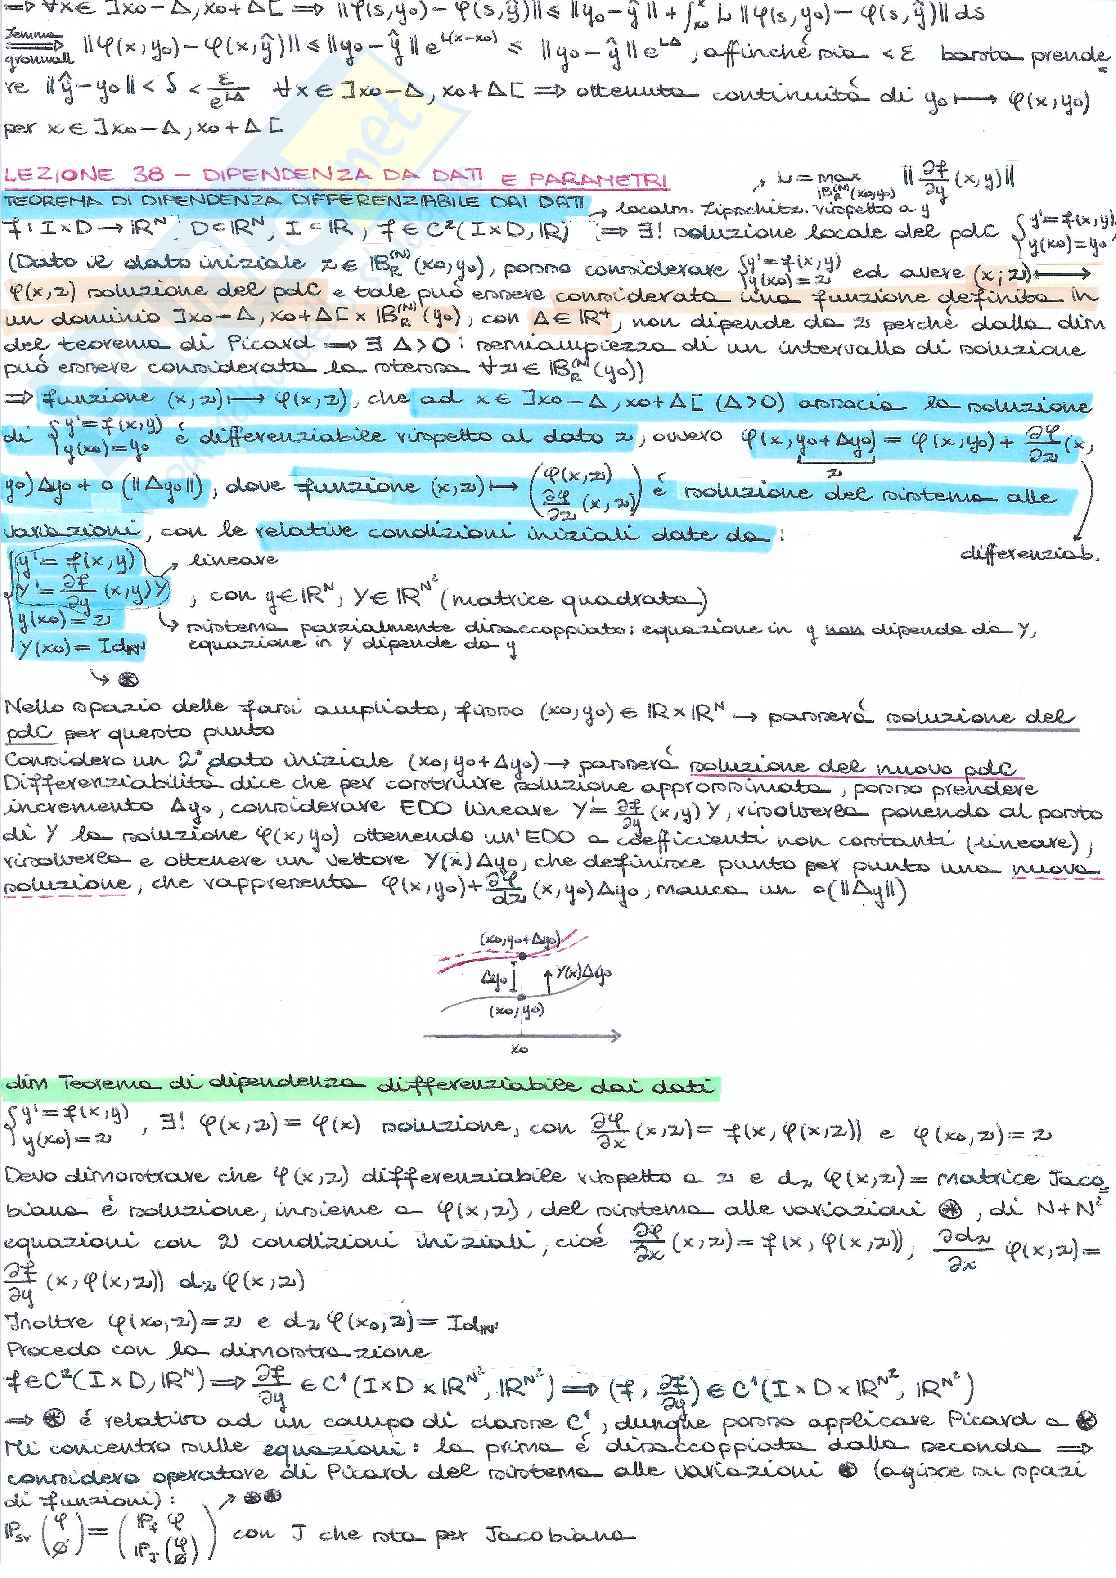 ⟹ ∀x∈]x₀−Δ, x₀+Δ[ ⟹ ‖φ(s,y₀)−φ(s,ŷ)‖ ≤ ‖y₀−ŷ‖ + ∫ₓ₀ˣ L ‖φ(s,y₀)−φ(s,ŷ)‖ ds
Lemma Gronwall ⟹ ‖φ(x,y₀)−φ(x,ŷ)‖ ≤ ‖y₀−ŷ‖ e^{L(x−x₀)} ≤ ‖y₀−ŷ‖ e^{LΔ}, affinché sia < ε basta prende=
re ‖ŷ−y₀‖ < δ < ε/e^{LΔ} ∀x∈]x₀−Δ, x₀+Δ[ ⟹ ottenuta continuità di y₀ ⟼ φ(x,y₀)
per x∈]x₀−Δ, x₀+Δ[
LEZIONE 38 – DIPENDENZA DA DATI E PARAMETRI
L = max ‖∂f/∂y (x,y)‖
TEOREMA DI DIPENDENZA DIFFERENZIABILE DAI DATI → localm. Lipschitz. rispetto a y
f: I×D → ℝᴺ, D⊂ℝᴺ, I⊂ℝ, f∈C²(I×D,ℝ) ⟹ ∃! soluzione locale del pdC {y'=f(x,y) y(x₀)=y₀
(Dato il dato iniziale z∈𝔹_R^(N)(x₀,y₀), posso considerare {y'=f(x,y) y(x₀)=z ed avere (x;z)⟼
φ(x,z) soluzione del pdC e tale può essere considerata una funzione definita in
un dominio ]x₀−Δ, x₀+Δ[ × 𝔹_R^(N)(y₀), con Δ∈ℝ⁺, non dipende da z perché dalla dim
del teorema di Picard ⟹ ∃ Δ>0 : semiampiezza di un intervallo di soluzione
può essere considerata la stessa ∀z∈𝔹_R^(N)(y₀))
⟹ funzione (x,z)⟼φ(x,z), che ad x∈]x₀−Δ, x₀+Δ[ (Δ>0) associa la soluzione
di {y'=f(x,y) y(x₀)=y₀ è differenziabile rispetto al dato z, ovvero φ(x,y₀+Δy₀) = φ(x,y₀) + ∂φ/∂z (x,
z
y₀)Δy₀ + o(‖Δy₀‖), dove funzione (x,z)⟼ (φ(x,z) ∂φ/∂z (x,z)) è soluzione del sistema alle
variazioni, con le relative condizioni iniziali date da :
differenziab.
{y'=f(x,y) → lineare
Y'=∂f/∂y (x,y)Y , con y∈ℝᴺ, Y∈ℝ^{N²} (matrice quadrata)
y(x₀)=z → sistema parzialmente disaccoppiato: equazione in y non dipende da Y,
Y(x₀)=Id_ℝᴺ equazione in Y dipende da y
↳ ⊛
Nello spazio delle fasi ampliato, fisso (x₀,y₀)∈ℝ×ℝᴺ → passerà soluzione del
pdC per questo punto
Considero un 2° dato iniziale (x₀,y₀+Δy₀) → passerà soluzione del nuovo pdC
Differenziabilità dice che per costruire soluzione approssimata, posso prendere
incremento Δy₀, considerare EDO lineare Y'=∂f/∂y (x,y)Y, risolverla ponendo al posto
di Y la soluzione φ(x,y₀) ottenendo un'EDO a coefficienti non costanti (lineare),
risolverla e ottenere un vettore Y(x)Δy₀, che definisce punto per punto una nuova
soluzione, che rappresenta φ(x,y₀)+∂φ/dz (x,y₀)Δy₀, manca un o(‖Δy‖)
(x₀,y₀+Δy₀)
Δy₀ Y(x)Δy₀
(x₀,y₀)
x₀
dim Teorema di dipendenza differenziabile dai dati
{y'=f(x,y) y(x₀)=z , ∃! φ(x,z)=φ(x) soluzione, con ∂φ/∂x (x,z)=f(x,φ(x,z)) e φ(x₀,z)=z
Devo dimostrare che φ(x,z) differenziabile rispetto a z e d_z φ(x,z)= matrice Jaco=
biana è soluzione, insieme a φ(x,z), del sistema alle variazioni ⊛, di N+N²
equazioni con 2 condizioni iniziali, cioè ∂φ/∂x (x,z)=f(x,φ(x,z)), ∂d_z/∂x φ(x,z)=
∂f/∂y (x,φ(x,z)) d_z φ(x,z)
Inoltre φ(x₀,z)=z e d_z φ(x₀,z)= Id_ℝᴺ
Procedo con la dimostrazione
f∈C²(I×D,ℝᴺ)⟹∂f/∂y ∈C¹(I×D×ℝ^{N²},ℝ^{N²})⟹(f, ∂f/∂y)∈C¹(I×D×ℝ^{N²},ℝ^{N²})
⟹ ⊛ è relativo ad un campo di classe C¹, dunque posso applicare Picard a ⊛
Mi concentro sulle equazioni: la prima è disaccoppiata dalla seconda ⟹
considero operatore di Picard del sistema alle variazioni ⊛ (agisce su spazi
di funzioni): → ⊛⊛
ℙ_sv (φ ∅) = (ℙ_f φ ℙ_J(φ ∅)) con J che sta per Jacobiana